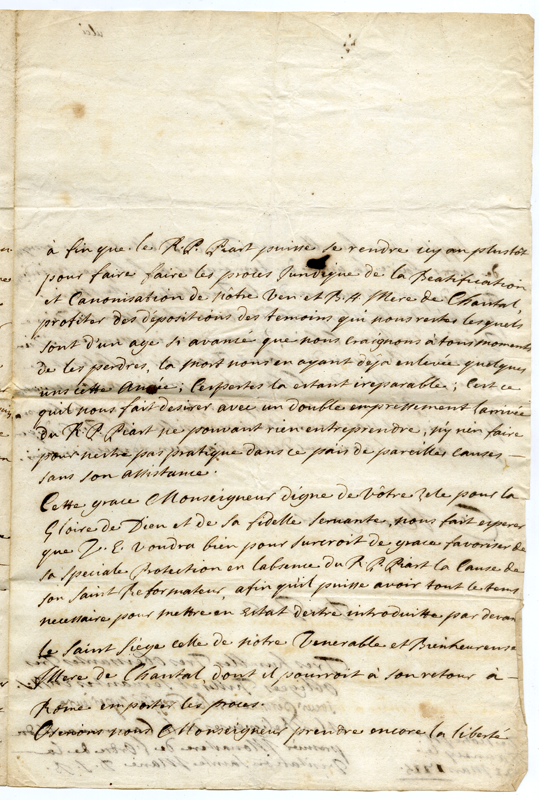 à fin que le R.P. Piart puisse se rendre icy au plustôt
pour faire faire les procès Juridique de la Beatification
et Canonisation de nôtre Ven et B.H. Mere de Chantal,
profiter des depositions des temoins qui nous restes lesquels
sont d'un age si avancé que nous craignons à tous moments
de les perdres, la mort nous en ayant deja enlevée quelques
uns cette Année; Ces pertes la estant irreparable; C'est ce
qu'il nous fait desirer avec un double empressement l'arrivée
du R.P. Piart ne pouvant rien entreprendre, ny rien faire
pour n'estre pas pratique dans ce païs de pareilles causes
sans son assistance.
Cette grace Monseigneur digne de Vôtre Zele pour la
Gloire de Dieu et de sa fidelle servante, nous fait esperer
que V. E. voudra bien pour surcroit de grace favoriser de
sa speciale Protection en l'absence du R.P. Piart la Cause de
son Saint Reformateur, afin qu'il puisse avoir tout le tems
necessaire pour mettre en Estat d'estre introduitte par devan
le Saint Siege celle de nôtre Venerable et Bienheureuse
Mere de Chantal, dont il pourroit à son retour à
Rome emporter les proces.
Oserions nous Monseigneur prendre encore la liberté